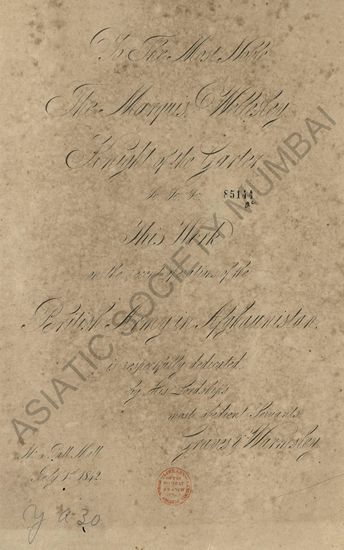 To The Most Noble
The Marquis Wellesley
Knight of the Garter
&c. &c. &c.
85144
This Work
on the recent operations of the
British Army in Afghaunistan,
is respectfully dedicated,
by His Lordships
most obedient Servants
Graves & Warmsley
Pall Mall
July 1st 1842
ASIATIC SOCIETY MUMBAI